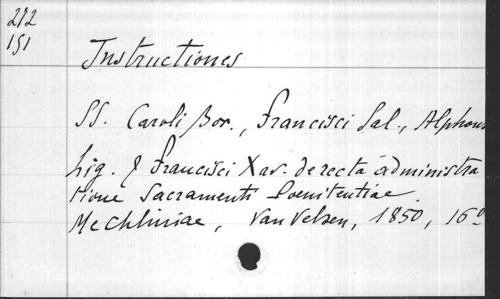 212
151
Instructiones
SS. Caroli Bor., Francisci Sal., Alphons
Lig. & Francisci Xav. de recta administra
tione Sacramenti Poenitentiae.
Mechliniae, Van Velsen, 1850, 16º